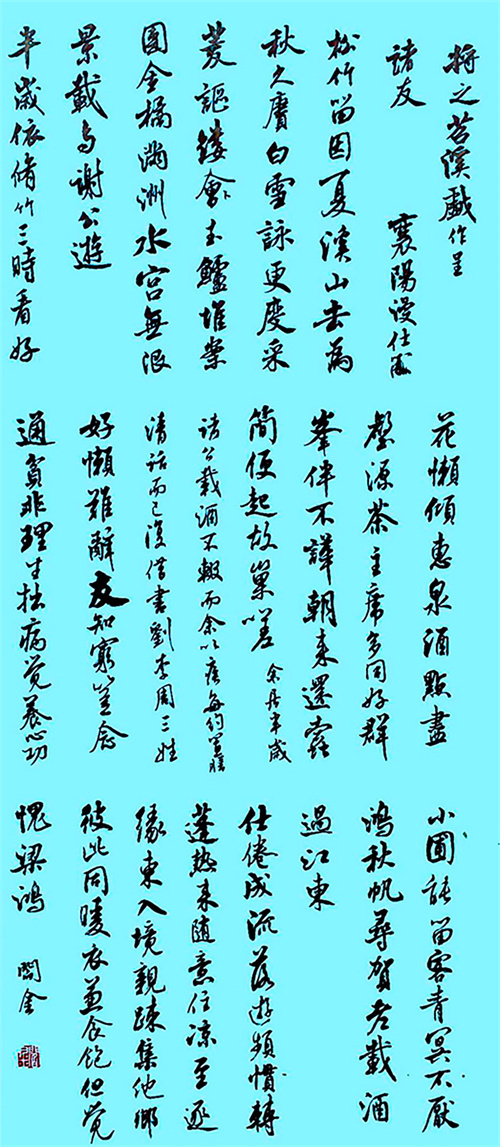 將之苕溪戲作呈
諸友 襄陽漫仕黻
松竹留因夏溪山去為
秋久賡白雪詠更度采
菱謳縷會玉鱸堆案
團金橘滿洲水宮無限
景載与謝公遊
半歲依脩竹三時看好
花懶傾惠泉酒點盡
壑源茶主席多同好群
峯伴不譁朝來還蠹
簡便起故巢嗟 余居半歲
諸公載酒不輟而余以疾每約置膳
清話而已復借書劉李周三姓
好懶難辭友知窮豈念
通貧非理生拙病覺養心功
小圃能留客青冥不厭
鴻秋帆尋賀老載酒
過江東
仕倦成流落遊頻慣轉
蓬熱來隨意住涼至逐
緣東入境親疎集他鄉
彼此同暖衣兼食飽但覺
愧梁鴻 閻金